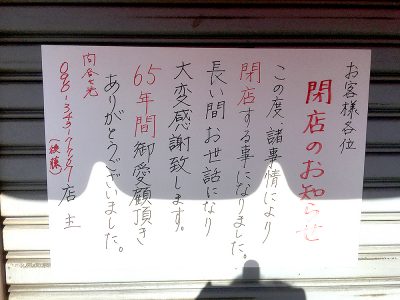 お客様各位
閉店のお知らせ
この度、諸事情により
閉店する事になりました。
長い間お世話になり
大変感謝致します。
65年間御愛顧頂き
ありがとうございました。
店主
問合せ先
(後藤)